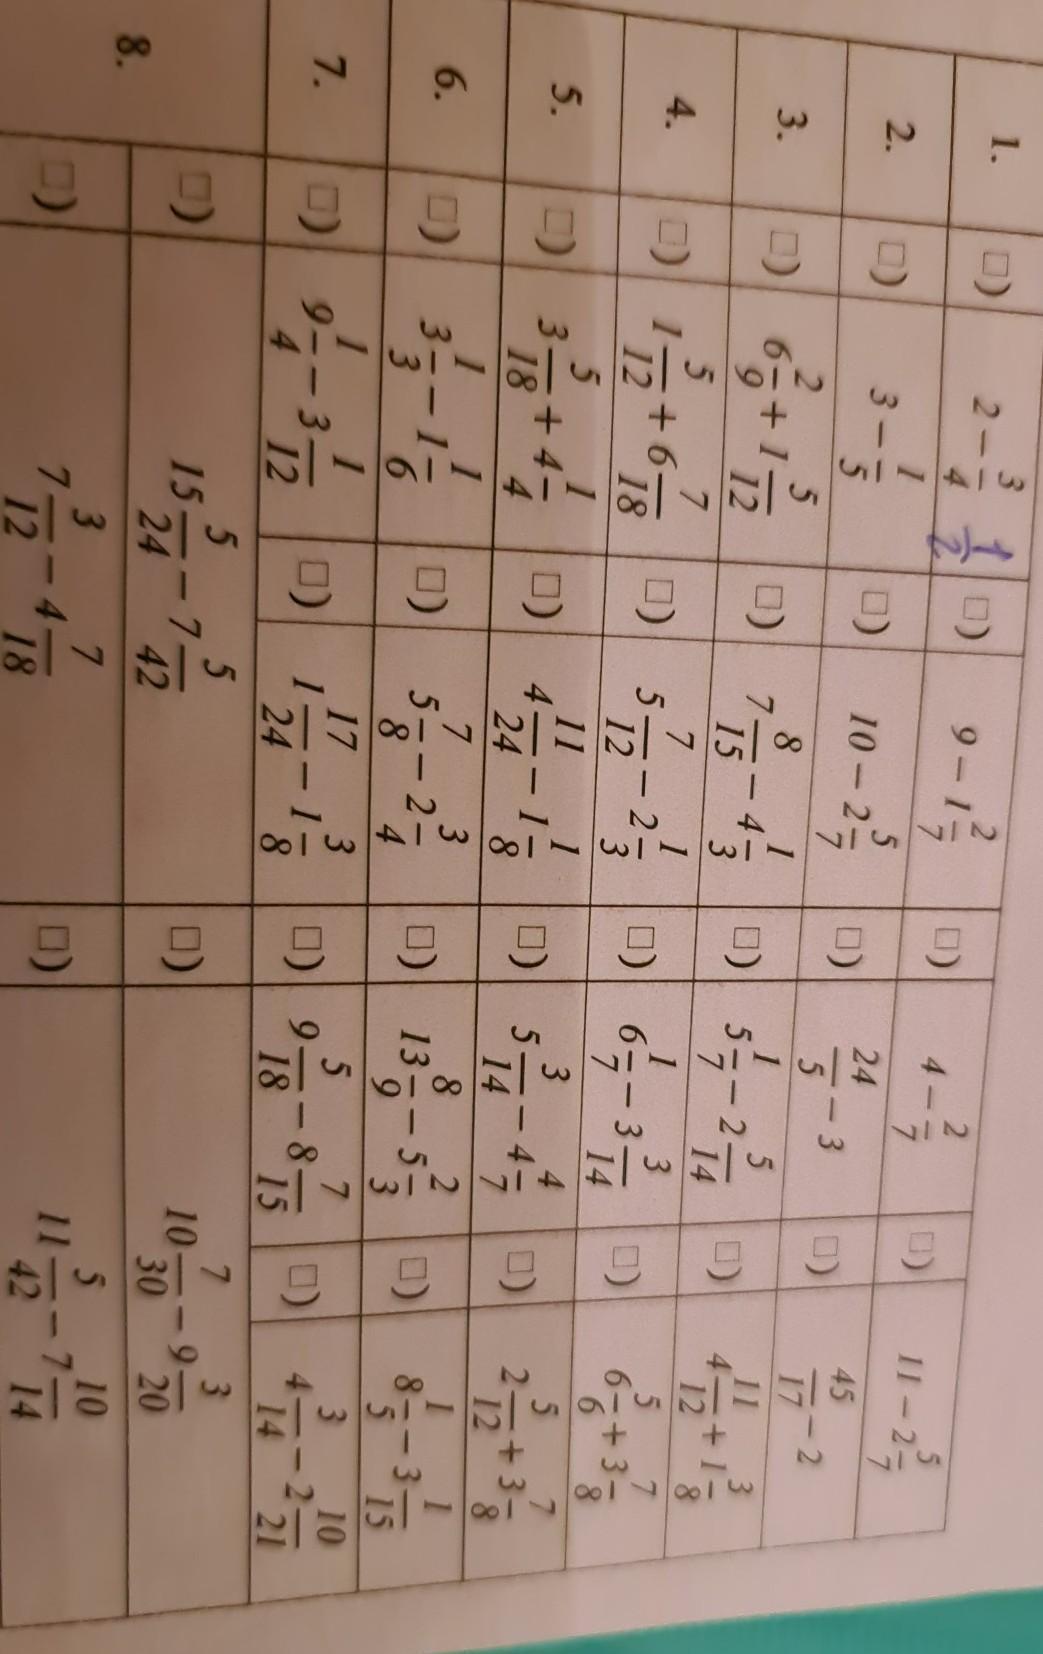 1. □) 2 − 3/4 1/2 □) 9 − 1 2/7 □) 4 − 2/7 □) 11 − 2 5/7
2. □) 3 − 1/5 □) 10 − 2 5/7 □) 24/5 − 3 □) 45/17 − 2
3. □) 6 2/9 + 1 5/12 □) 7 8/15 − 4 1/3 □) 5 1/7 − 2 5/14 □) 4 11/12 + 1 3/8
4. □) 1 5/12 + 6 7/18 □) 5 7/12 − 2 1/3 □) 6 1/7 − 3 3/14 □) 6 5/6 + 3 7/8
5. □) 3 5/18 + 4 1/4 □) 4 11/24 − 1 1/8 □) 5 3/14 − 4 4/7 □) 2 5/12 + 3 7/8
6. □) 3 1/3 − 1 1/6 □) 5 7/8 − 2 3/4 □) 13 8/9 − 5 2/3 □) 8 1/5 − 3 1/15
7. □) 9 1/4 − 3 1/12 □) 1 17/24 − 1 3/8 □) 9 5/18 − 8 7/15 □) 4 3/14 − 2 10/21
8. □) 15 5/24 − 7 5/42 □) 10 7/30 − 9 3/20
□) 7 3/12 − 4 7/18 □) 11 5/42 − 7 10/14